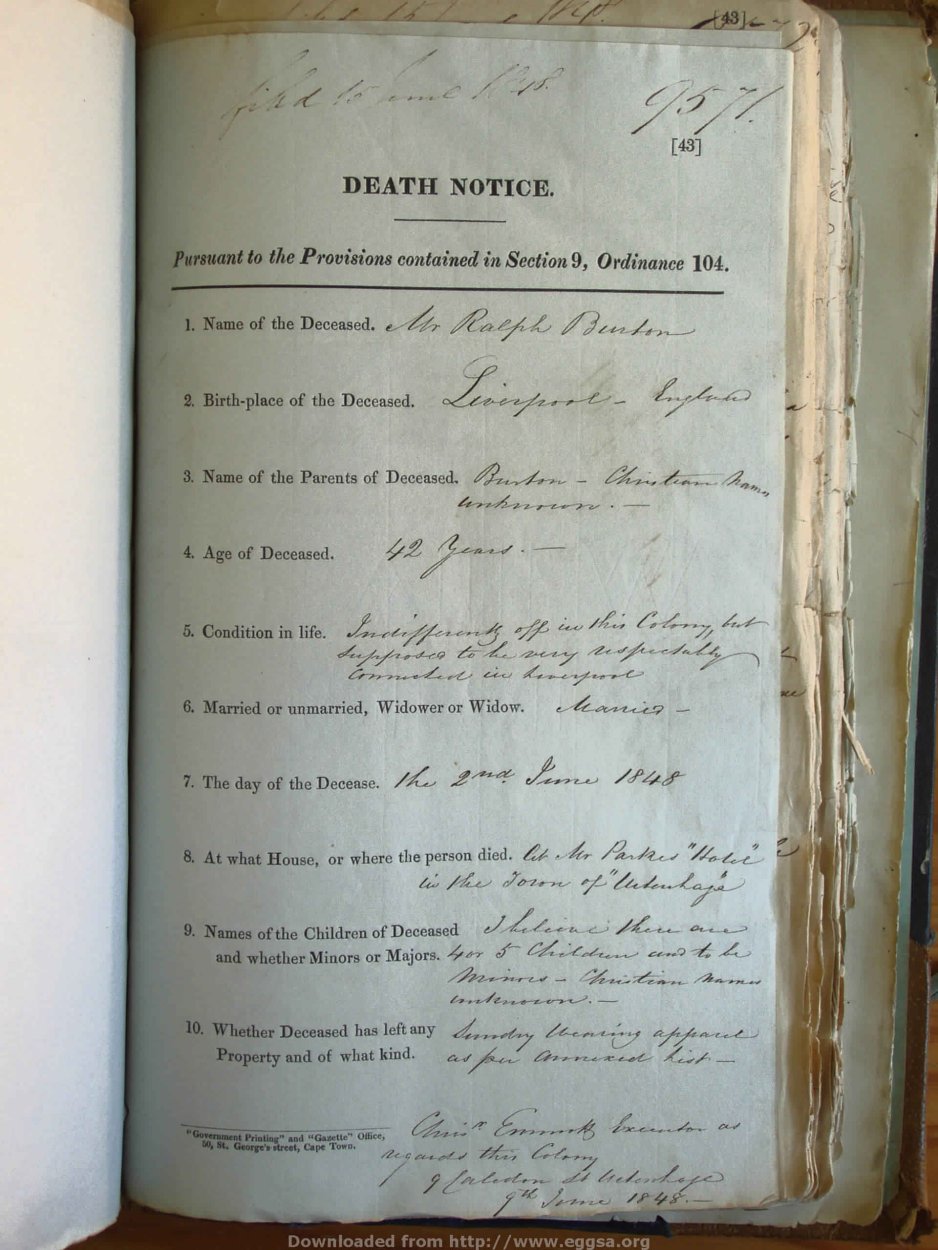 [43]
filed 15 June 1848.
9571.
[43]
DEATH NOTICE.
Pursuant to the Provisions contained in Section 9, Ordinance 104.
1. Name of the Deceased. Mr Ralph Burton
2. Birth-place of the Deceased. Liverpool - England
3. Name of the Parents of Deceased. Burton - Christian names
unknown. -
4. Age of Deceased. 42 Years. -
5. Condition in life. Indifferently off in this Colony, but
supposed to be very respectably
connected in Liverpool
6. Married or unmarried, Widower or Widow. Married -
7. The day of the Decease. the 2nd June 1848
8. At what House, or where the person died. At Mr Parkes "Hotel"
in the Town of "Uitenhage"
9. Names of the Children of Deceased I believe there are
and whether Minors or Majors. 4 or 5 Children and to be
Minors - Christian names
unknown. -
10. Whether Deceased has left any Sundry Wearing apparel
Property and of what kind. as per annexed list -
"Government Printing" and "Gazette" Office,
50, St. George's street, Cape Town.
Executor as
regards this Colony
9 Caledon St Uitenhage
9th June 1848. -
Downloaded from http://www.eggsa.org